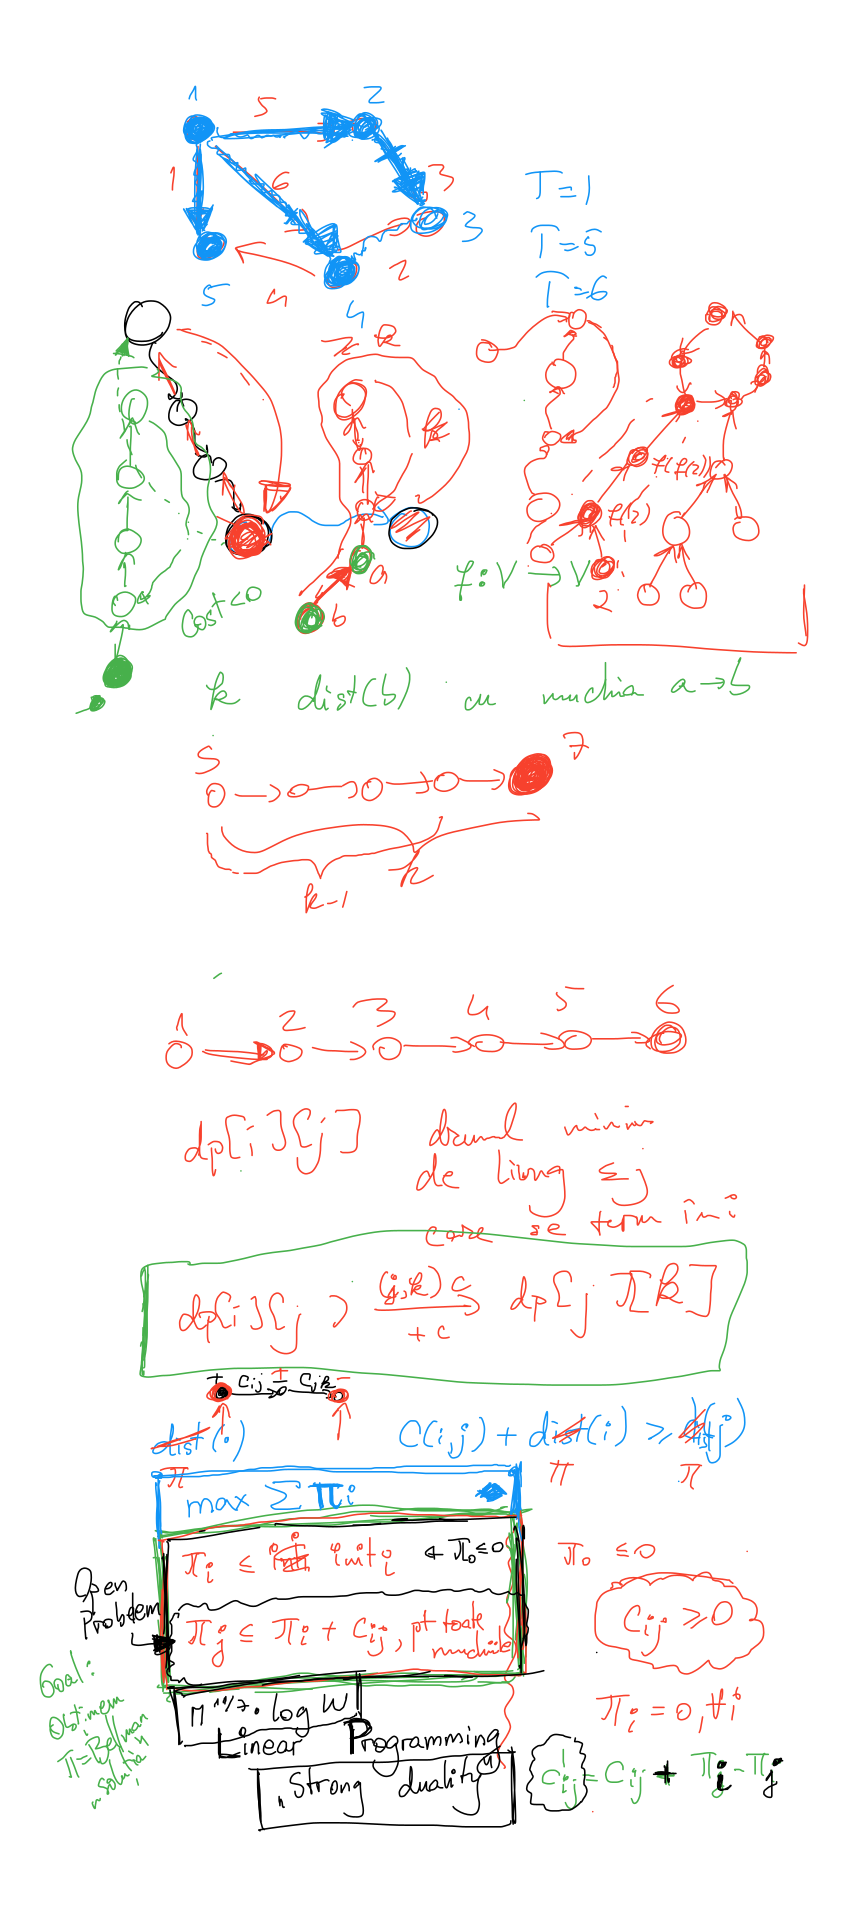 1 5 2
1 6 3 T=1
3 T=5
5 4 2 T=6
4
k
k
f(f(2))
f(2)
a f: V → V
cost<0 b 2
k dist(b) cu muchia a→b
S 7
k-1 k
1 2 3 4 5 6
dp[i][j] drumul minim
de lung ≤ j
care se term în i
dp[i][j] (j,k) c dp[j][k]
+c
+ Cij + Cjk -
dist(i) C(i,j) + dist(i) ≥ dist(j)
π π π
max Σ πi
πi ≤ initi + π0 ≤ 0 π0 ≤ 0
Open
Problem
πj ≤ πi + Cij, pt toate
muchiile
Cij ≥ 0
Goal:
Obtinem
π = Bellman
solutia
M^10/7 · log W πi = 0, ∀i
Linear Programming
"Strong duality" C'ij = Cij + πi - πj